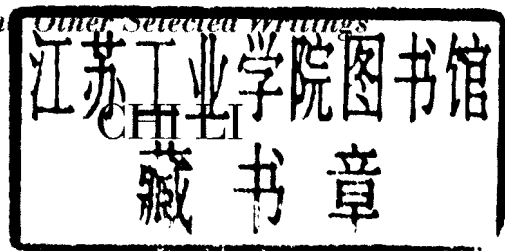 Other Selected Writings
江苏工业学院图书馆
CHI LI
藏书章